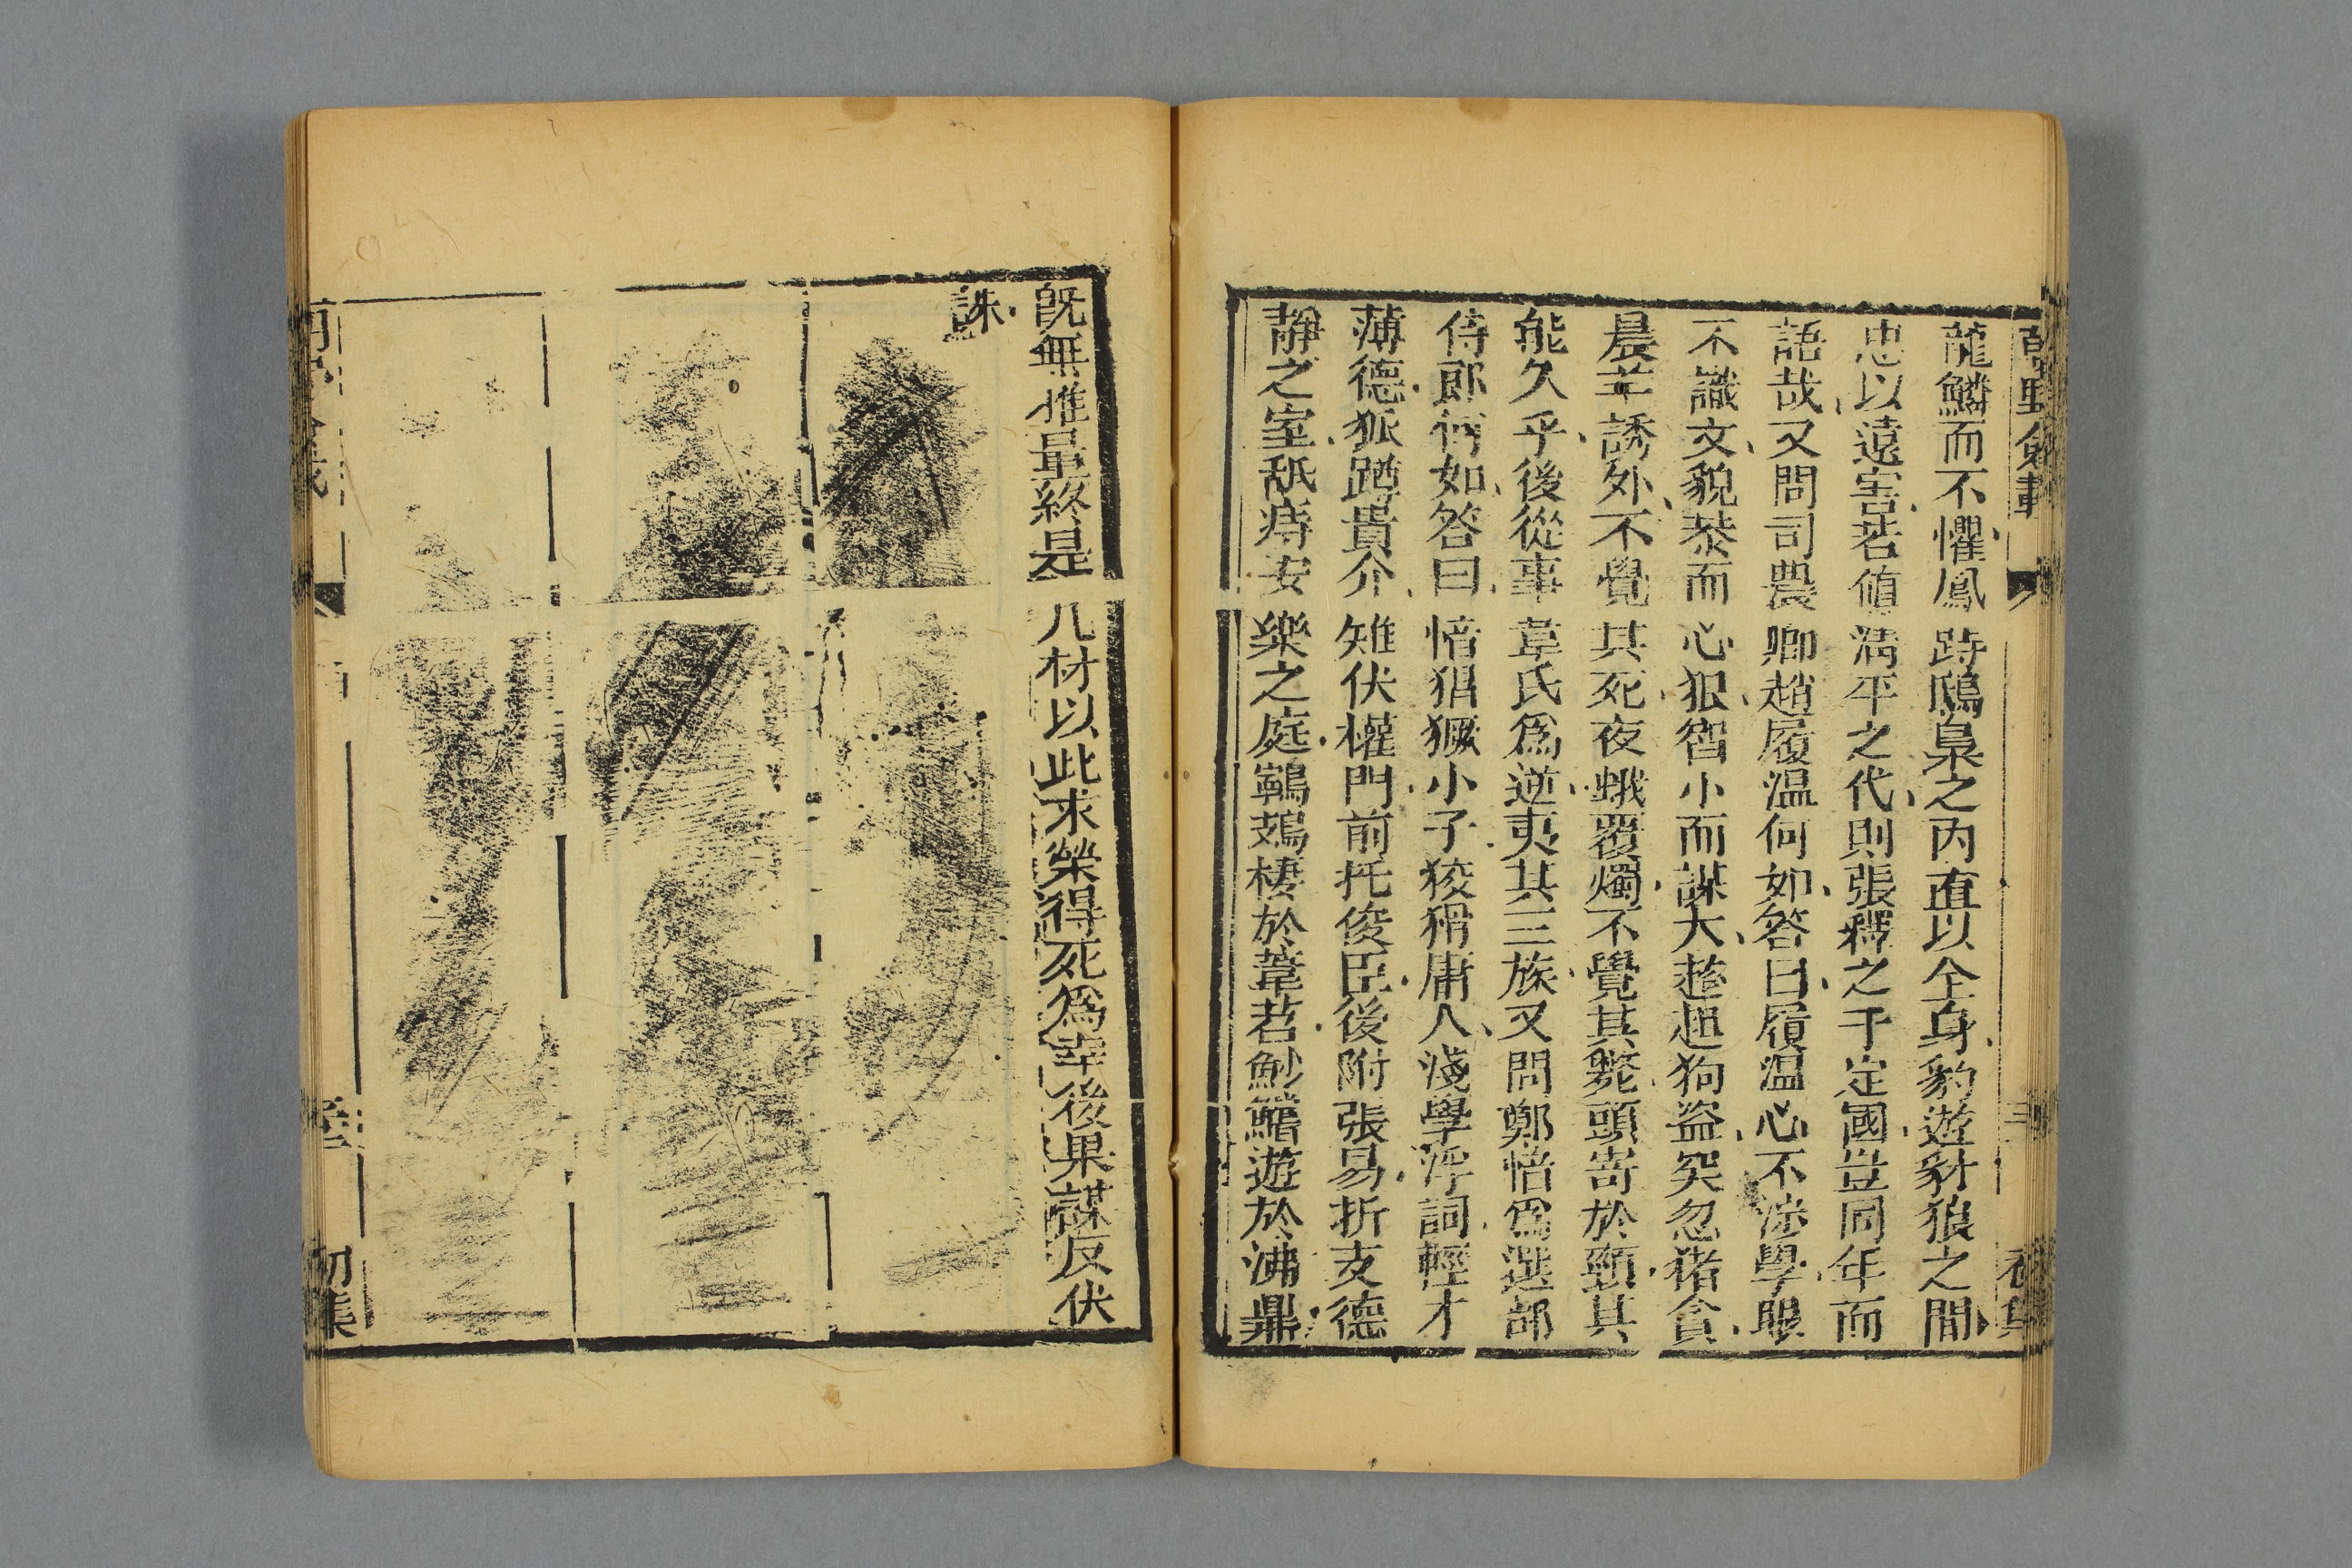 龍鱗而不懼鳳跱鴟梟之内直以全身豹遊豺狼之間
忠以遠害若値淸平之代則張釋之于定國豈同年而
語哉又問司農卿趙履温何如答曰履温心不涉學眼
不識文貌恭而心狠智小而謀大趑趄狗盜突忽猪貪
晨羊誘外不覺其死夜蛾覆燭不覺其斃頭寄於頸其
能久乎後從事韋氏爲逆夷其三族又問鄭愔爲選部
侍郎何如答曰愔猖獗小子狡猾庸人淺學浮詞輕才
薄德狐蹲貴介雉伏權門前托俊臣後附張易折支德
靜之室舐痔安樂之庭鸋鴂棲於葦苕魦鰌遊於沸鼎
既無雅量終是凡材以此求榮得死爲幸後果謀反伏
誅
初集